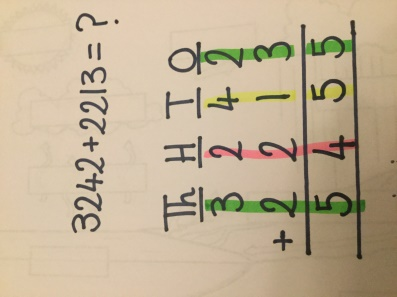 3242+2213=?
Th H T O
3 2 4 2
+ 2 2 1 3
5 4 5 5